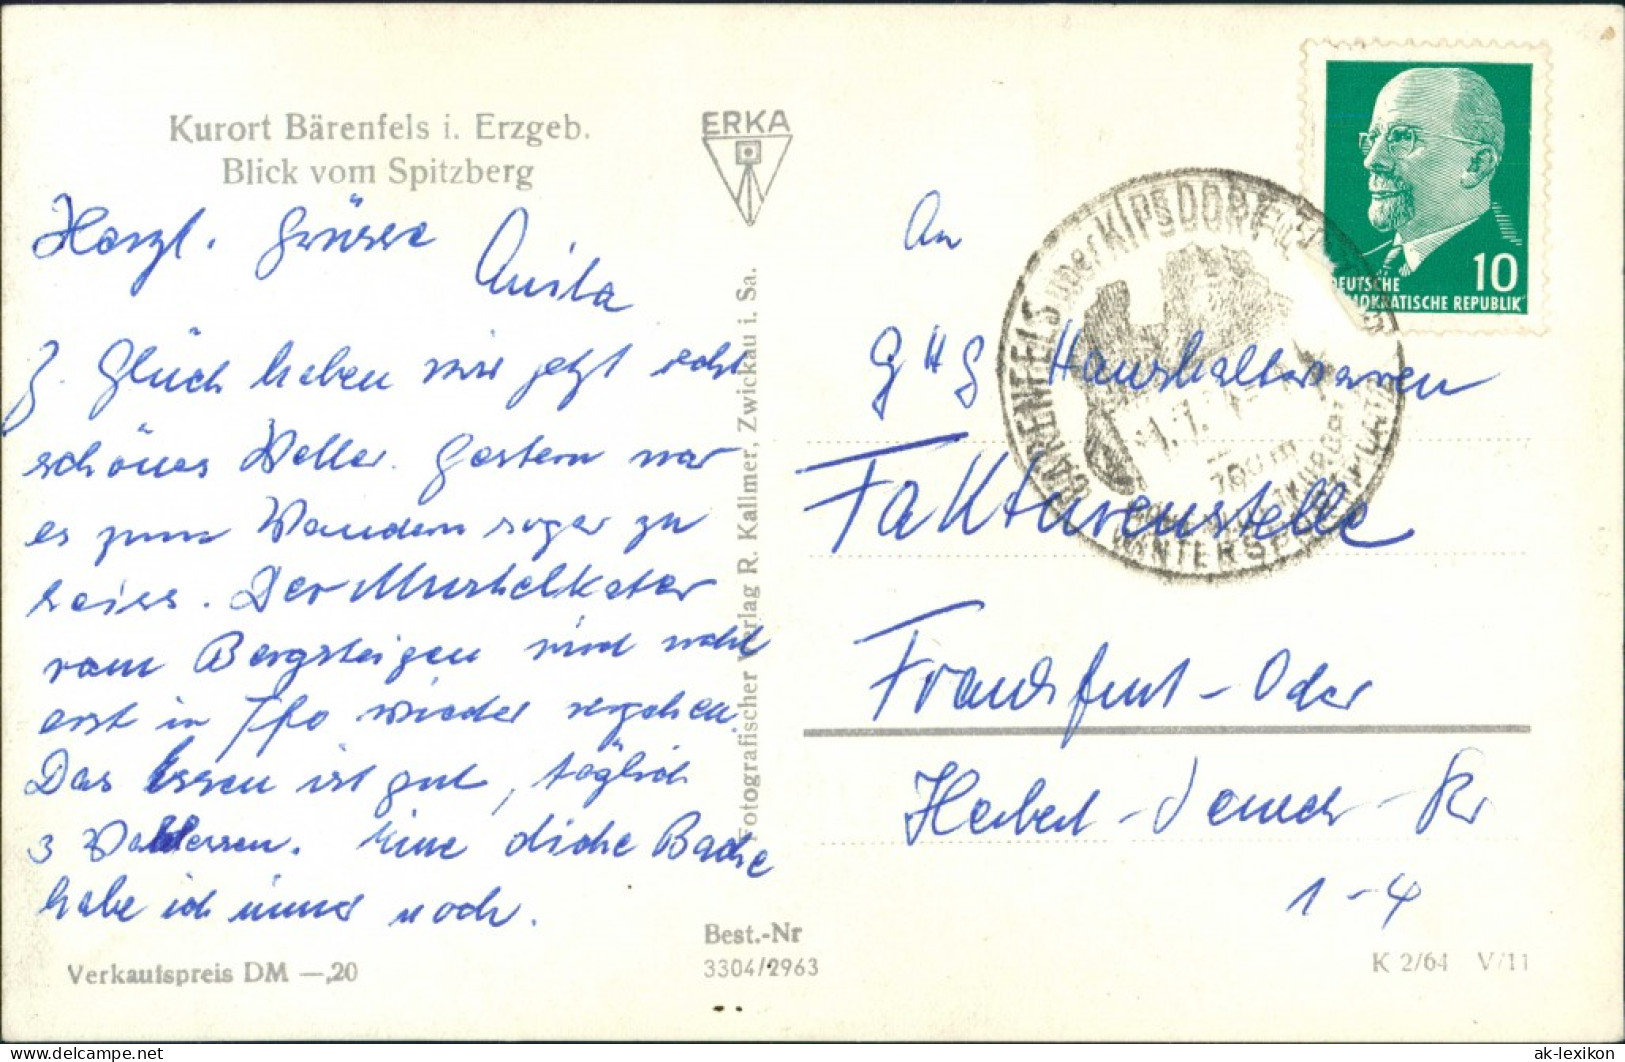 Kurort Bärenfels i. Erzgeb.
Blick vom Spitzberg
Herzl. Grüsse
Anita
Z. Glück haben wir jetzt recht
schönes Wetter. Gestern war
es zum Wandern sogar zu
heiss. Der Muskelkater
vom Bergsteigen wird wohl
erst in Ffo wieder vergehen.
Das Essen ist gut, täglich
3 Wahlessen. Eine dicke Backe
habe ich immer noch.
Verkaufspreis DM —,20
ERKA
Fotografischer Verlag R. Kallmer, Zwickau i. Sa.
Best.-Nr
3304/2963
DEUTSCHE
DEMOKRATISCHE REPUBLIK
10
BÄRENFELS über KIPSDORF
700 m
WINTERSPORTPLATZ
An
GHG Haushaltswaren
Fakturenstelle
Frankfurt-Oder
Herbert-Jensch-Str
1-4
K 2/64 V/11
ak-lexikon
delcampe.net